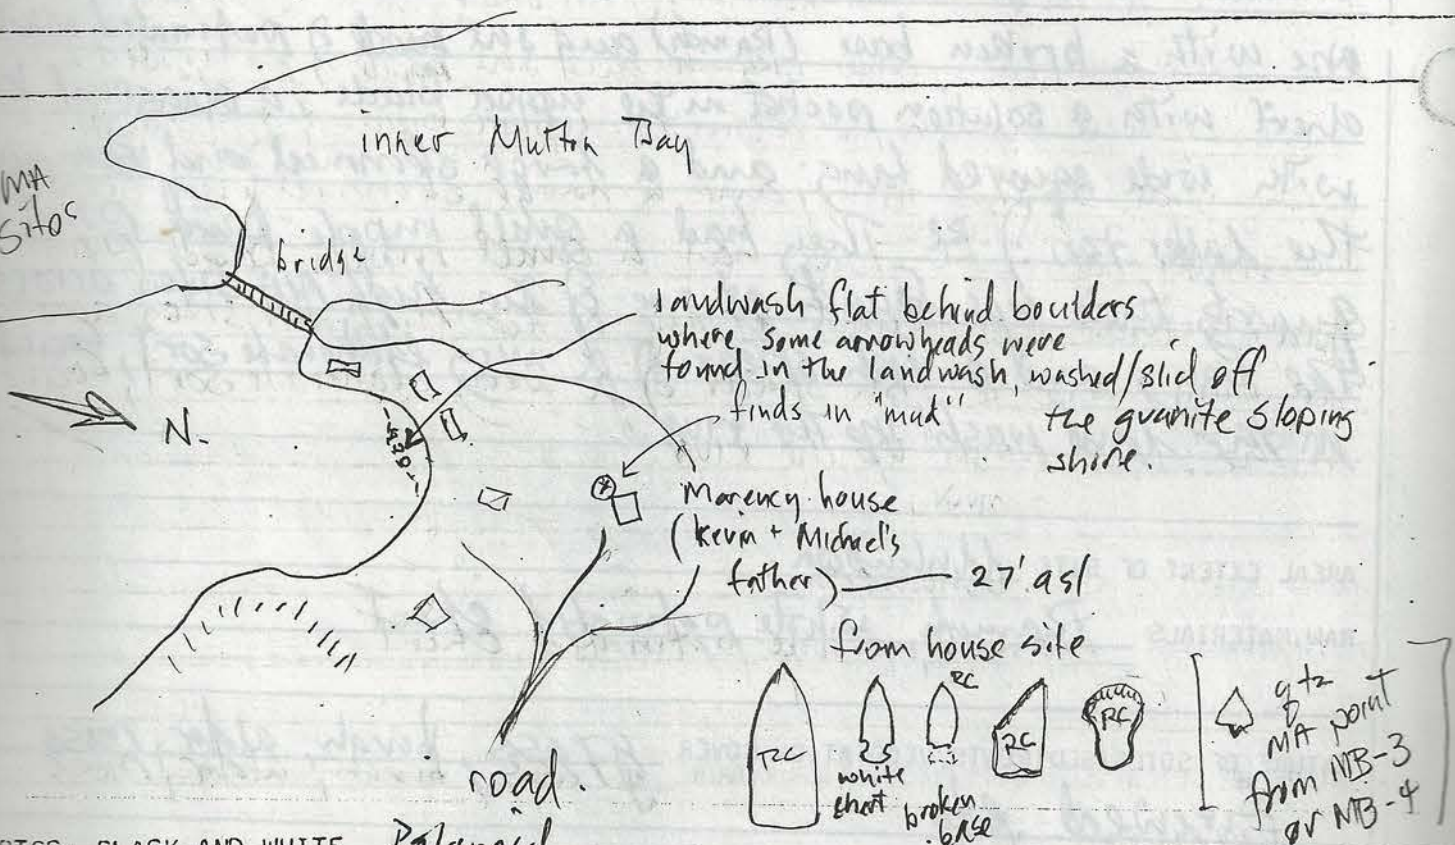 inner Mutton Bay
MA
sites
bridge
landwash flat behind boulders
where some arrowheads were
found in the landwash, washed/slid off
the granite sloping
shore.
finds in "mud"
N.
Marency house
(Kevin + Michael's
father) 27' asl
from house site
RC
white
chert
RC
broken
base
RC
RC
qtz
MA point
from MB-3
or MB-4
road.
BLACK AND WHITE
Polaroid